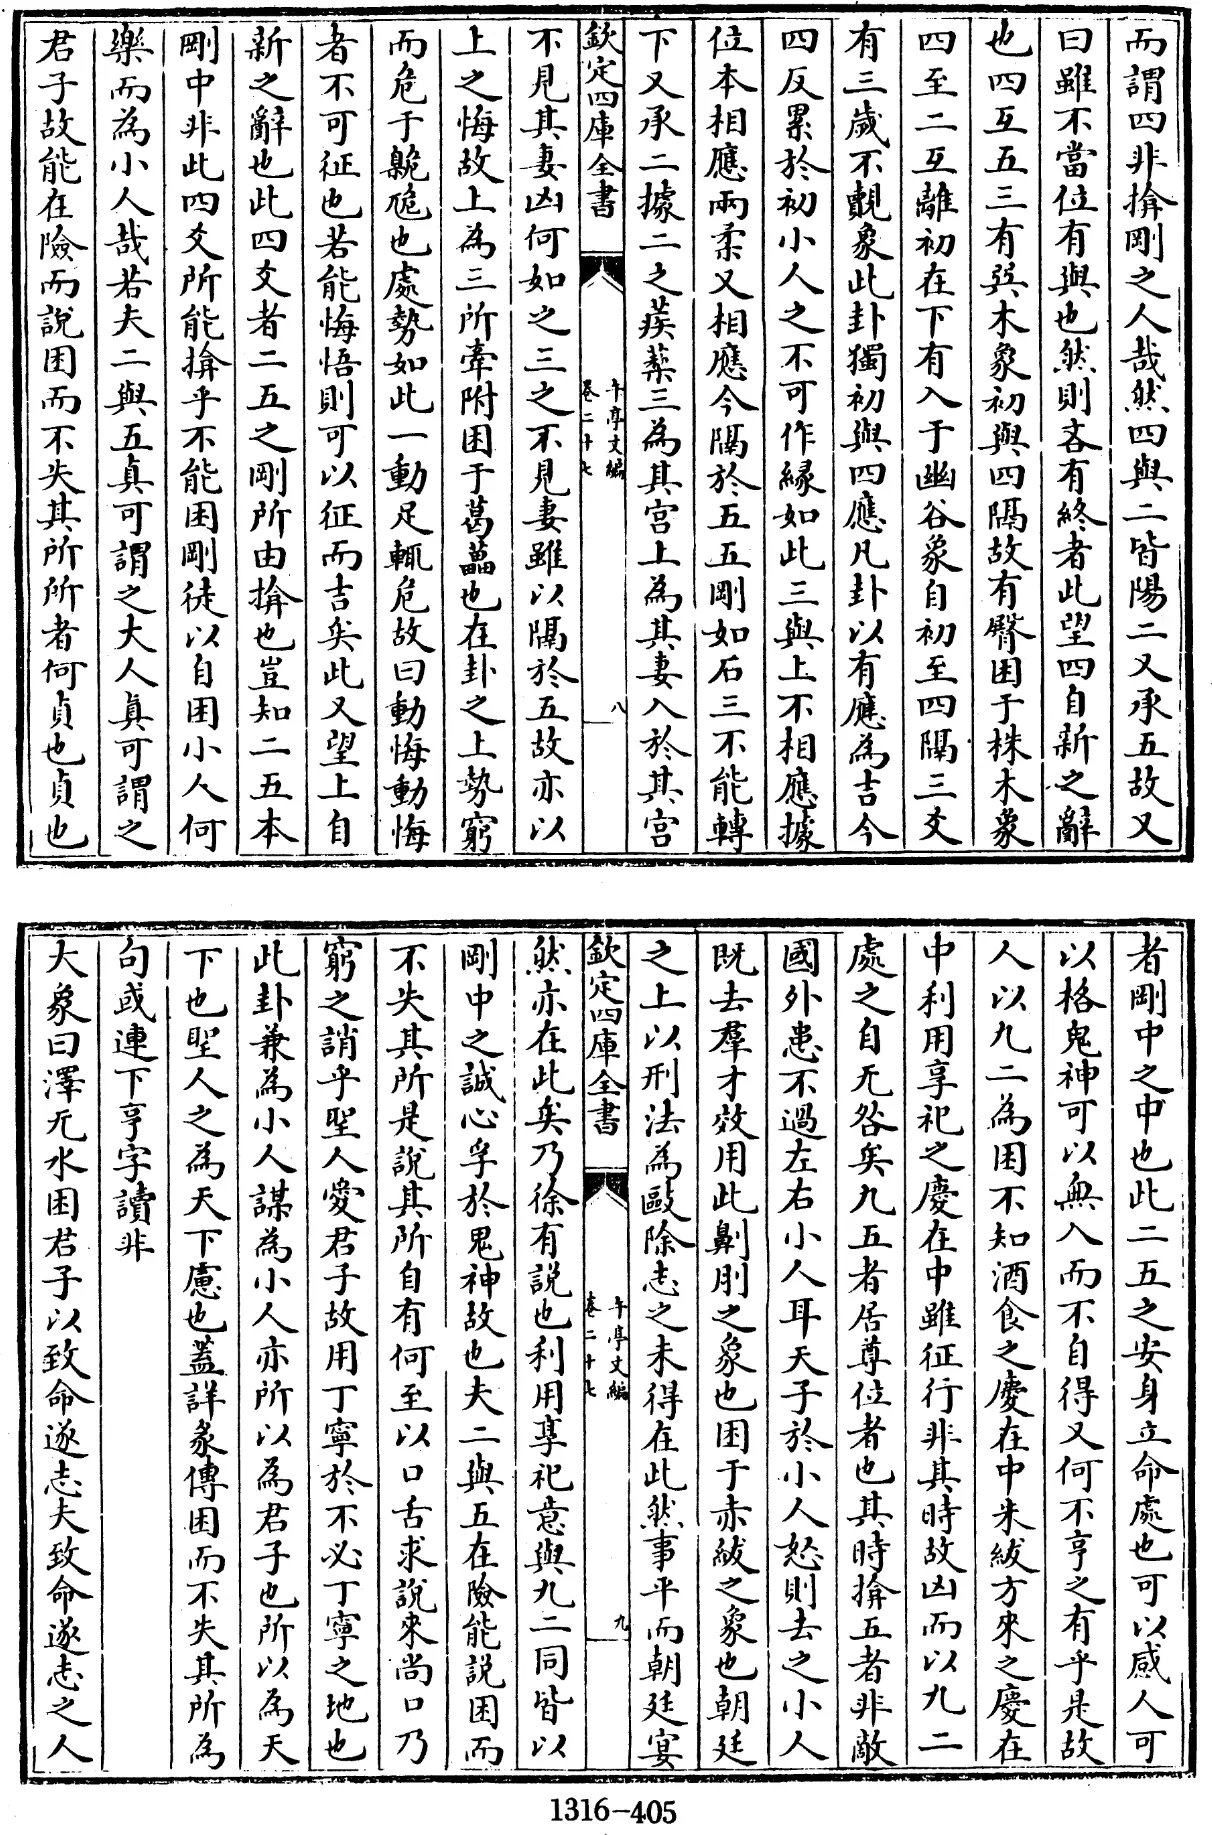 而謂四非揜剛之人哉然四與二皆陽二又承五故又
曰雖不當位有與也然則吝有終者此望四自新之辭
也四互五三有巽木象初與四隔故有臀困于株木象
四至二互離初在下有入于幽谷象自初至四隔三爻
有三歲不覿象此卦獨初與四應凡卦以有應為吉今
四反累於初小人之不可作縁如此三與上不相應據
位本相應兩柔又相應今隔於五五剛如石三不能轉
下又承二據二之蒺蔾三為其宮上為其妻入於其宮
欽定四庫全書
午亭文編
卷二十七
八
不見其妻凶何如之三之不見妻雖以隔於五故亦以
上之悔故上為三所牽附困于葛藟也在卦之上勢窮
而危于臲卼也處勢如此一動足輒危故曰動悔動悔
者不可征也若能悔悟則可以征而吉矣此又望上自
新之辭也此四爻者二五之剛所由揜也豈知二五本
剛中非此四爻所能揜乎不能困剛徒以自困小人何
樂而為小人哉若夫二與五真可謂之大人真可謂之
君子故能在險而說困而不失其所所者何貞也貞也
者剛中之中也此二五之安身立命處也可以感人可
以格鬼神可以無入而不自得又何不亨之有乎是故
人以九二為困不知酒食之慶在中朱紱方來之慶在
中利用享祀之慶在中雖征行非其時故凶而以九二
處之自无咎矣九五者居尊位者也其時揜五者非敵
國外患不過左右小人耳天子於小人怒則去之小人
既去羣才效用此劓刖之象也困于赤紱之象也朝廷
之上以刑法為敺除志之未得在此然事平而朝廷宴
欽定四庫全書
午亭文編
卷二十七
九
然亦在此矣乃徐有說也利用享祀意與九二同皆以
剛中之誠心孚於鬼神故也夫二與五在險能說困而
不失其所是說其所自有何至以口舌求說來尚口乃
窮之誚乎聖人愛君子故用丁寧於不必丁寧之地也
此卦兼為小人謀為小人亦所以為君子也所以為天
下也聖人之為天下慮也蓋詳彖傳困而不失其所為
句或連下亨字讀非
大象曰澤无水困君子以致命遂志夫致命遂志之人
1316-405